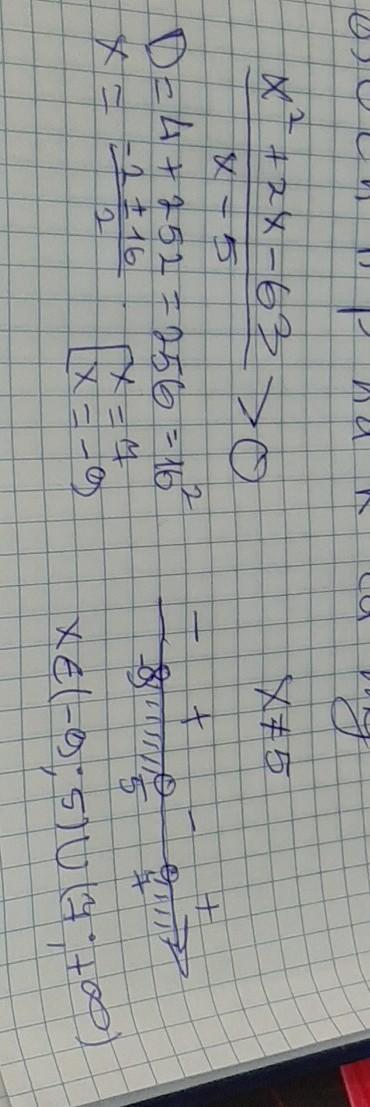 x² + 2x - 63
x - 5
> 0
x ≠ 5
D = 4 + 252 = 256 = 16²
x = (-2 ± 16)/2
[x = 7
x = -9
- + - +
-9 5 7
x ∈ (-9; 5) ∪ (7; +∞)